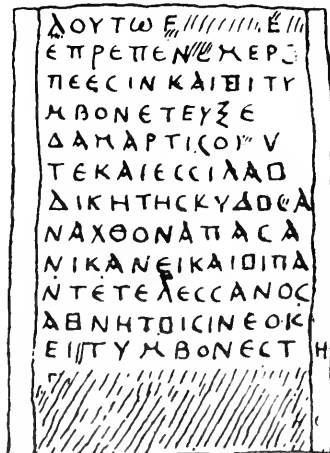 ΔΟΥΤΩ Ε Ε
ΕΠΡΕΠΕΝ ΜΕΡΟ
ΠΕΕϹΙΝΚΑΙΟΙΤΥ
ΜΒΟΝΕΤΕΥΞΕ
ΔΑΜΑΡΤΙϹΟΥ V
ΤΕΚΑΙΕϹϹΙΛΑΟ
ΔΙΚΗΤΗϹΚΥΔΟϹΑ
ΝΑΧΘΟΝΑΠΑϹΑ
ΝΙΚΑΝΕΙΚΑΙΟΙΠΑ
ΝΤΕΤΕΛΕϹϹΑΝΟϹ
ΑΘΝΗΤΟΙϹΙΝΕΟΚ
ΕΙ ΤΥΜΒΟΝΕϹΤΗ